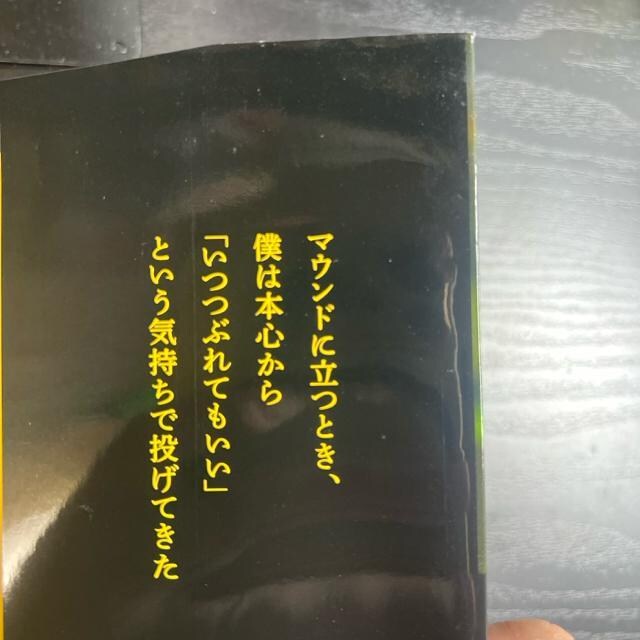 マウンドに立つとき、
僕は本心から
「いつつぶれてもいい」
という気持ちで投げてきた